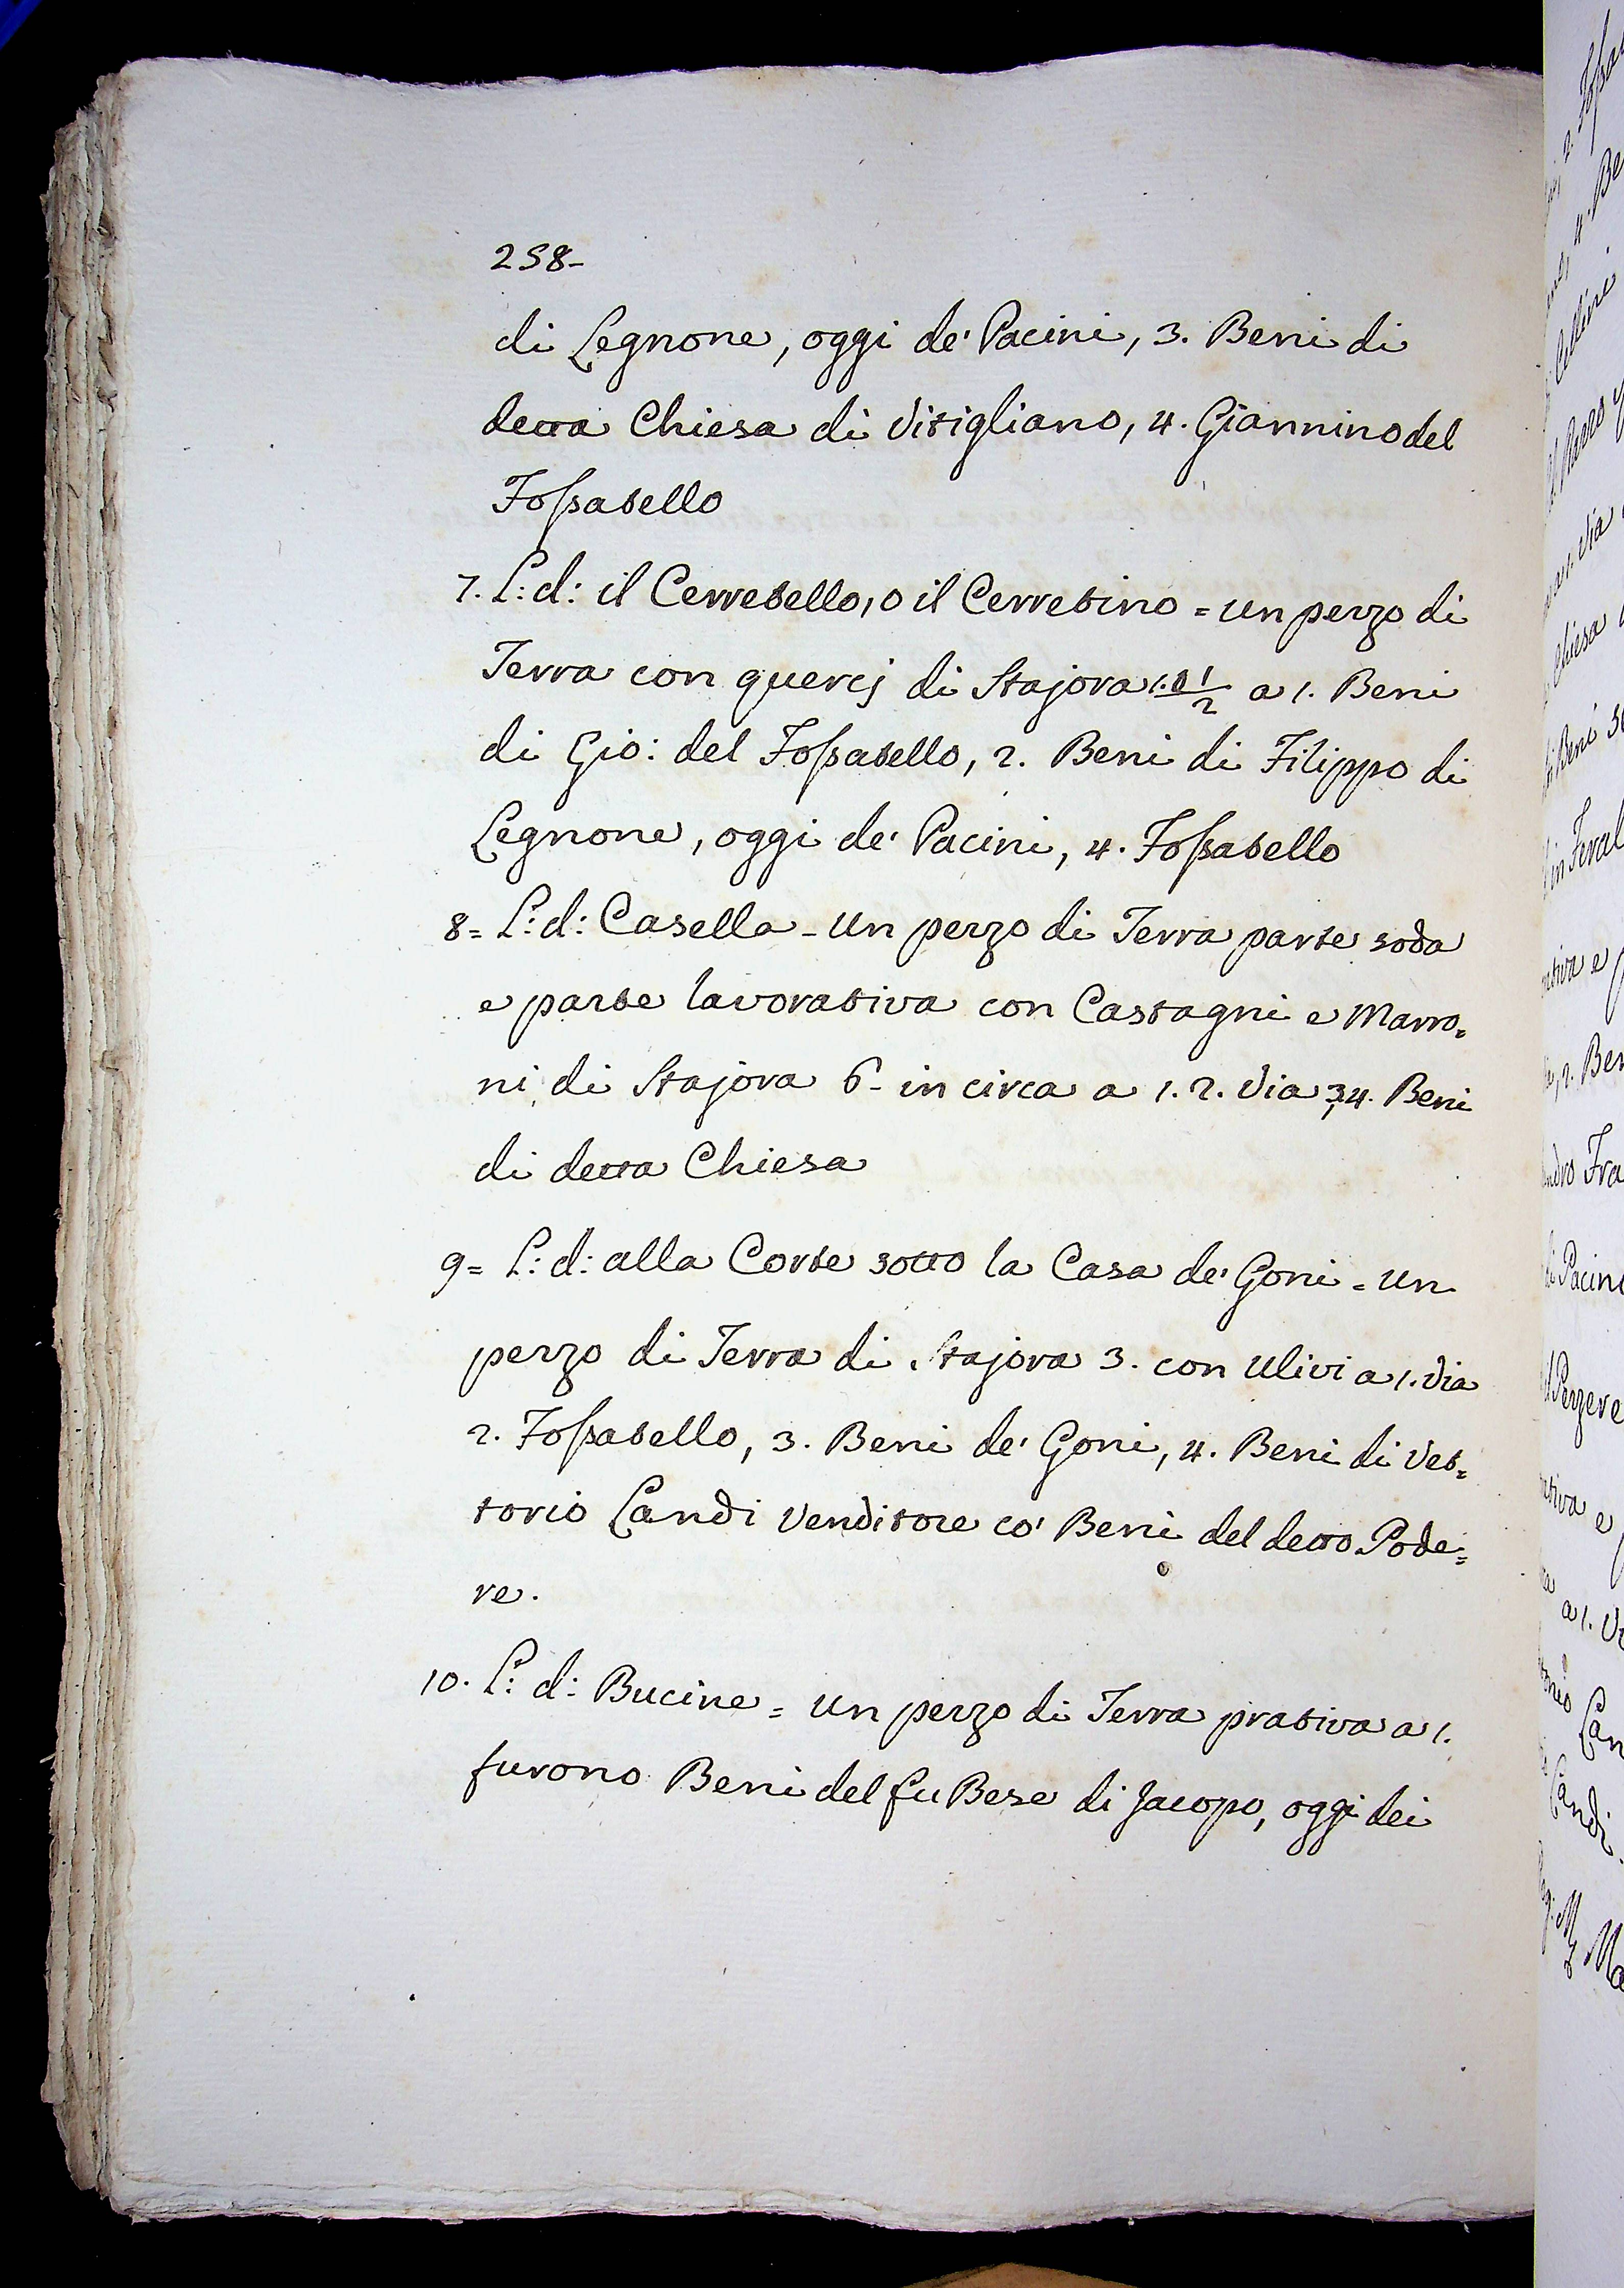 258-
di Legnone, oggi de' Pacini, 3. Beni di
detta Chiesa di Vitigliano, 4. Giannino del
Fossatello
7. L: d: il Cerretello, o il Cerretino = un pezzo di
Terra con quercj di Stajora a 1. Beni
di Gio: del Fossatello, 2. Beni di Filippo di
Legnone, oggi de' Pacini, 4. Fossatello
8= L: d: Casella - un pezzo di Terra parte soda
e parte lavorativa con Castagni e Marro=
ni di Stajora 6- in circa a 1. 2. Via 3,4. Beni
di detta Chiesa
9= L: d: alla Corte sotto la Casa de' Goni = un
pezzo di Terra di Stajora 3. con ulivi a 1. Via
2. Fossatello, 3. Beni de' Goni, 4. Beni di Vet=
torio Landi Venditore co' Beni del detto Pode=
re.
10. L: d: Bucine = un pezzo di Terra prativa a 1.
furono Beni del fu Bese di Jacopo, oggi dei